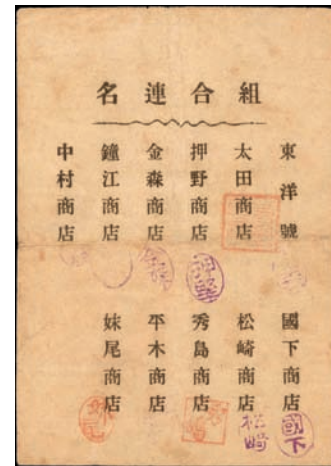 組合連名
東洋號
太田商店
押野商店
金森商店
鐘江商店
中村商店
國下商店
松崎商店
秀島商店
平木商店
妹尾商店
國下
松崎